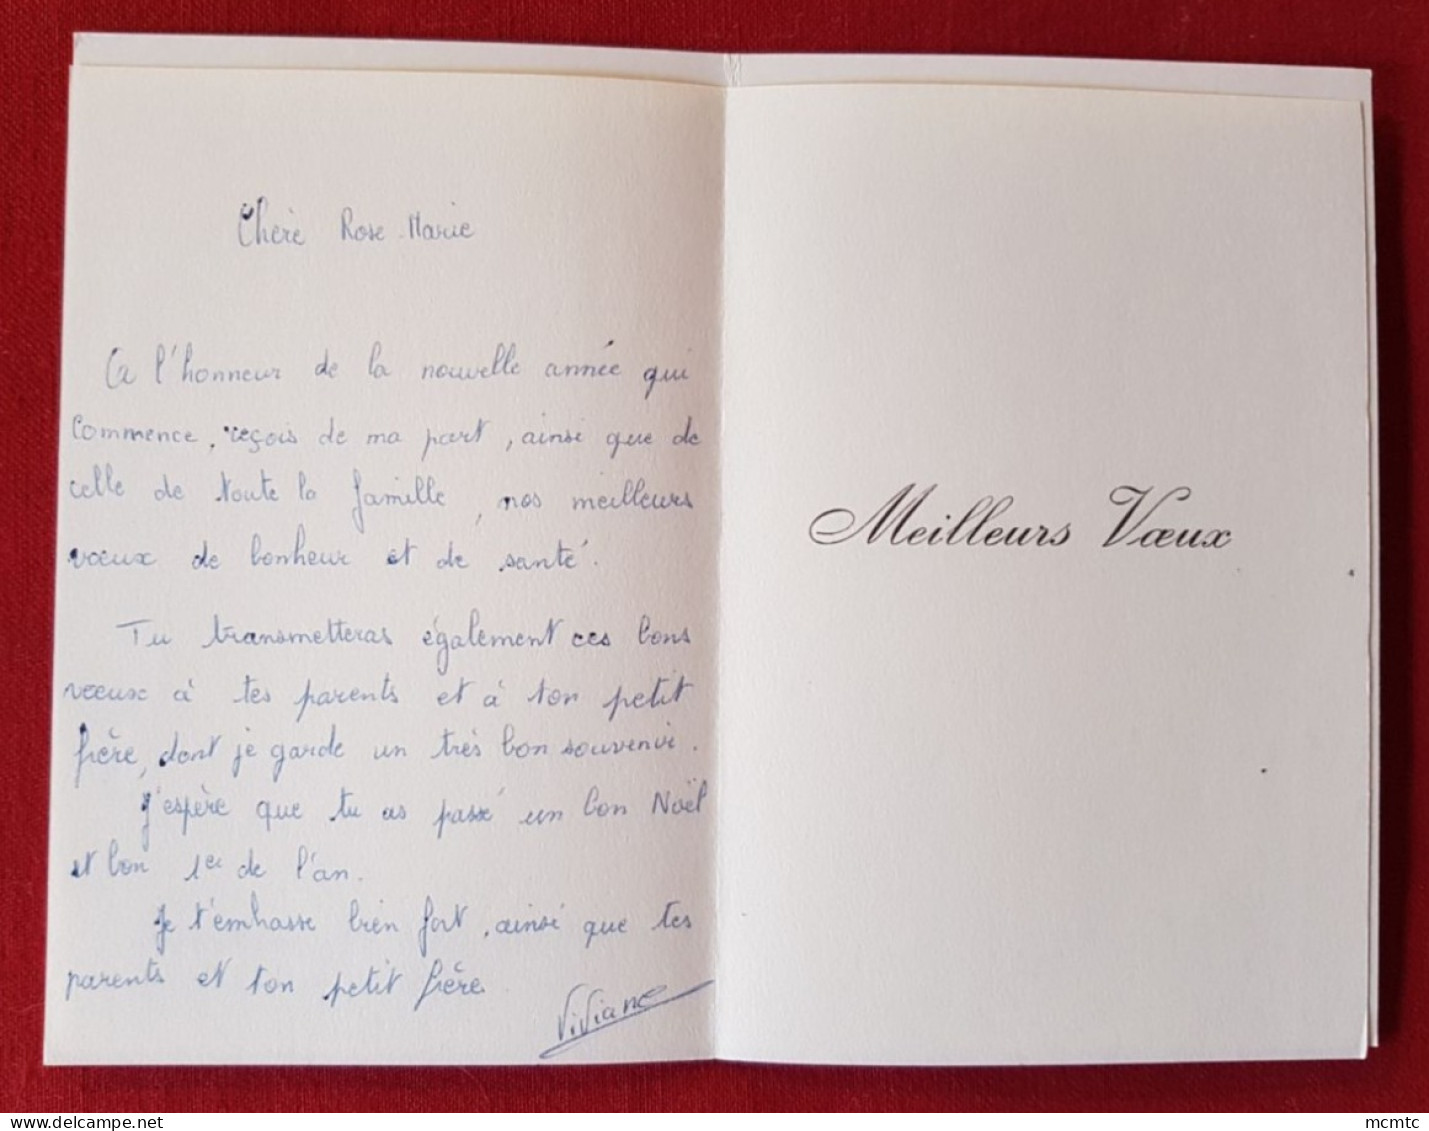 Chère Rose-Marie
A l'honneur de la nouvelle année qui
commence, reçois de ma part, ainsi que de
celle de toute la famille, nos meilleurs
vœux de bonheur et de santé.
Tu transmetteras également ces bons
vœux à tes parents et à ton petit
frère, dont je garde un très bon souvenir.
J'espère que tu as passé un bon Noël
et bon 1er de l'an.
Je t'embrasse bien fort, ainsi que tes
parents et ton petit frère.
Viviane
Meilleurs Vœux
delcampe.net
mcmtc